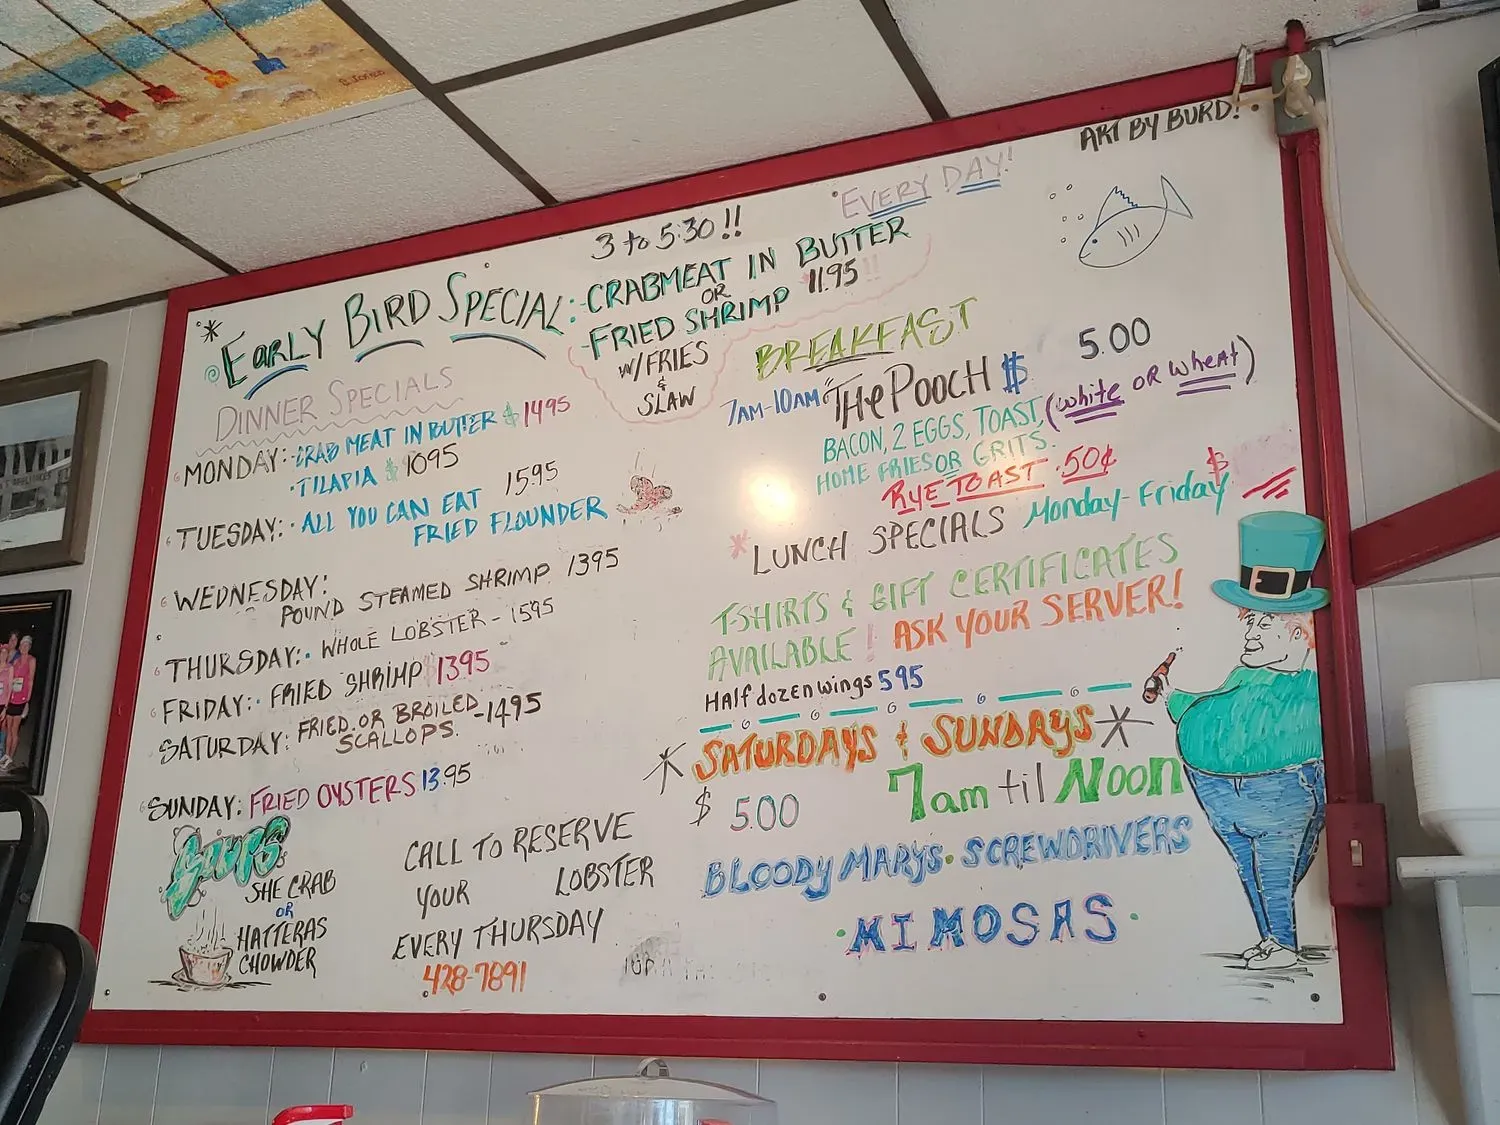 ART BY BURD!
EVERY DAY!
3 to 5:30!!
* EARLY BIRD SPECIAL: CRABMEAT IN BUTTER
OR
FRIED SHRIMP 11.95!!
W/FRIES
&
SLAW
DINNER SPECIALS
MONDAY: CRAB MEAT IN BUTTER $1495
· TILAPIA $1095
TUESDAY: · ALL YOU CAN EAT 1595
FRIED FLOUNDER
WEDNESDAY:
POUND STEAMED SHRIMP 1395
THURSDAY: · WHOLE LOBSTER - 1595
FRIDAY: · FRIED SHRIMP $1395
SATURDAY: FRIED OR BROILED
SCALLOPS. -1495
SUNDAY: FRIED OYSTERS 13.95
SOUPS
SHE CRAB
OR
HATTERAS
CHOWDER
CALL TO RESERVE
YOUR LOBSTER
EVERY THURSDAY
428-7891
BREAKFAST
7AM-10AM "THE POOCH $ 5.00
BACON, 2 EGGS, TOAST, (white OR wheat)
HOME FRIES OR GRITS.
RYE TOAST .50¢
* LUNCH SPECIALS Monday-Friday $
T-SHIRTS & GIFT CERTIFICATES
AVAILABLE! ASK YOUR SERVER!
Half dozen wings 595
* SATURDAYS & SUNDAYS *
7am til NOON
$ 5.00
BLOODY MARYS · SCREWDRIVERS
· MIMOSAS ·